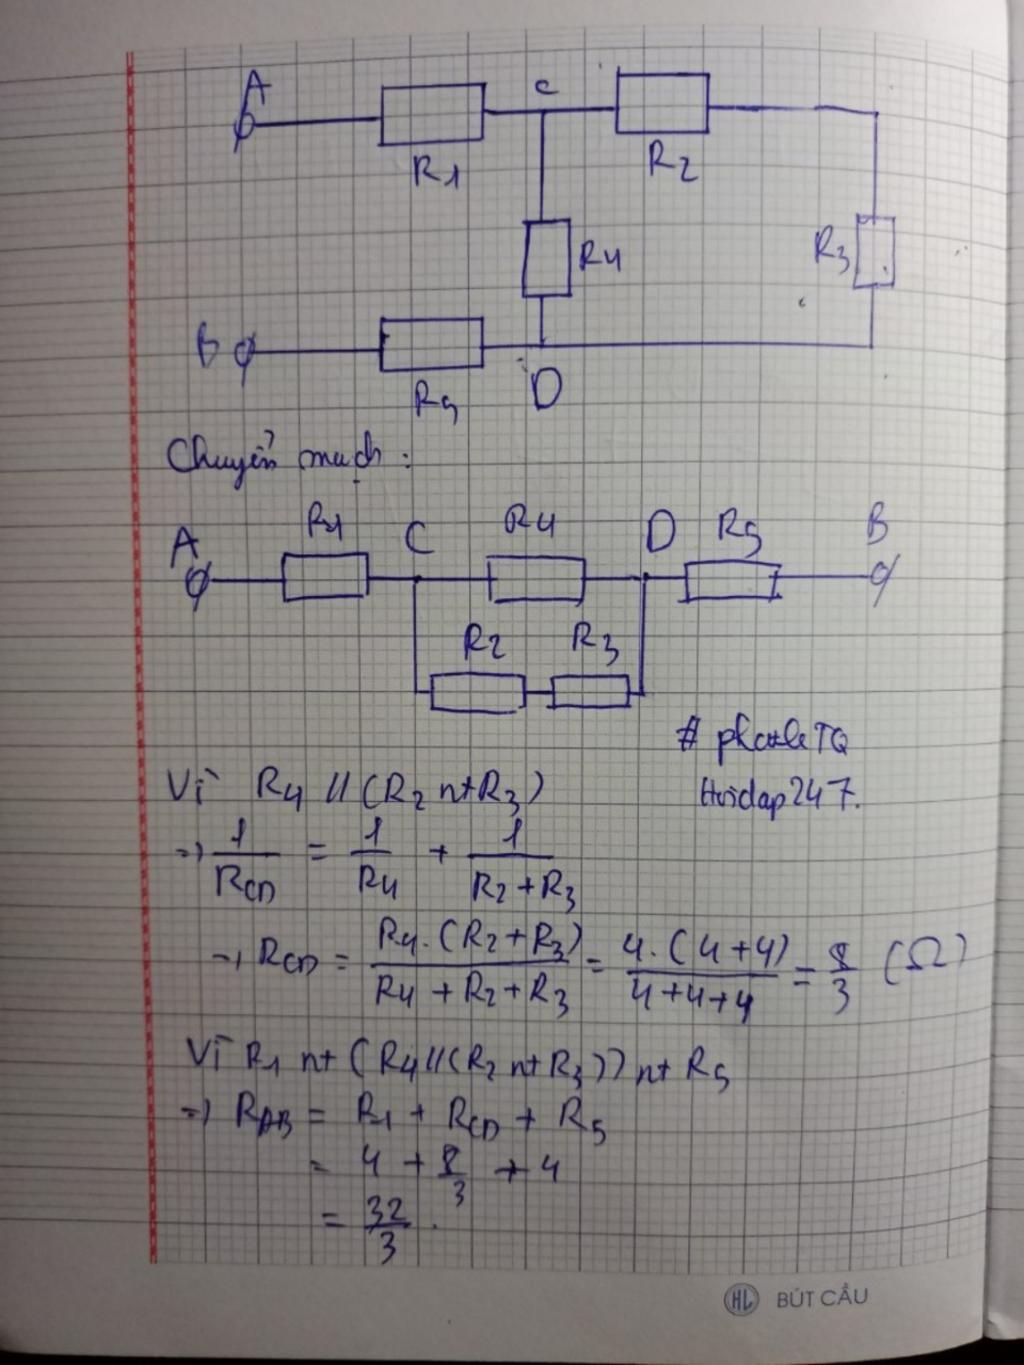 A
C
R1
R2
R4
R3
B
R5
D
Chuyển mạch :
A R1 C R4 D R5 B
R2 R3
# phanleTQ
Hoidap247.
Vì R4 // (R2 nt R3)
=> 1/RCD = 1/R4 + 1/(R2 + R3)
=> RCD = R4.(R2+R3)/(R4 + R2 + R3) = 4.(4+4)/(4+4+4) = 8/3 (Ω)
Vì R1 nt (R4//(R2 nt R3)) nt R5
=> RAB = R1 + RCD + R5
= 4 + 8/3 + 4
= 32/3 .
HL BÚT CẦU